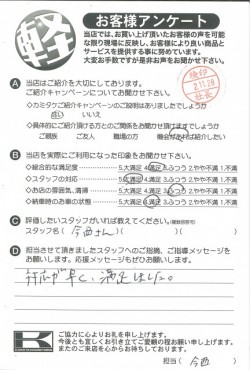 軽
お客様アンケート
当店では、お買い上げ頂いたお客様の声を可能な限り現場に反映し、お客様により良い商品とサービスを提供する事に努めています。
大変お手数ですが是非お声をお聞かせ下さい。
検印
2.11.28
A 当店はご紹介を大切にしております。
ご紹介キャンペーンについてお聞かせ下さい。
◇カミタクご紹介キャンペーンのご説明はありましたでしょうか
はい いいえ
◇具体的にご紹介頂ける方とのご関係をお聞かせ頂けますでしょうか
ご親族 ご友人 職場の方 機会があれば紹介したい
B 当店を実際にご利用になった印象お聞かせ下さい。
◇総合的な満足度 5.大満足 4.満足 3.ふつう 2.やや不満 1.不満
◇スタッフの対応 5.大満足 4.満足 3.ふつう 2.やや不満 1.不満
◇お店の雰囲気、清掃 5.大満足 4.満足 3.ふつう 2.やや不満 1.不満
◇納車時のお車の状態 5.大満足 4.満足 3.ふつう 2.やや不満 1.不満
C 評価したいスタッフがいれば教えてください。(複数回答可)
スタッフ名( 今西さん )
D 担当させて頂きましたスタッフへのご指摘、ご指導メッセージをお願いします。応援メッセージもぜひお願いします。
対応が早く、満足しました。
K
ご協力に心よりお礼を申し上げます。
今後とも宜しくお引き立てご愛顧の程お願い申し上げます。
またのご来店を心からお待ちしております。
担当( 今西 )